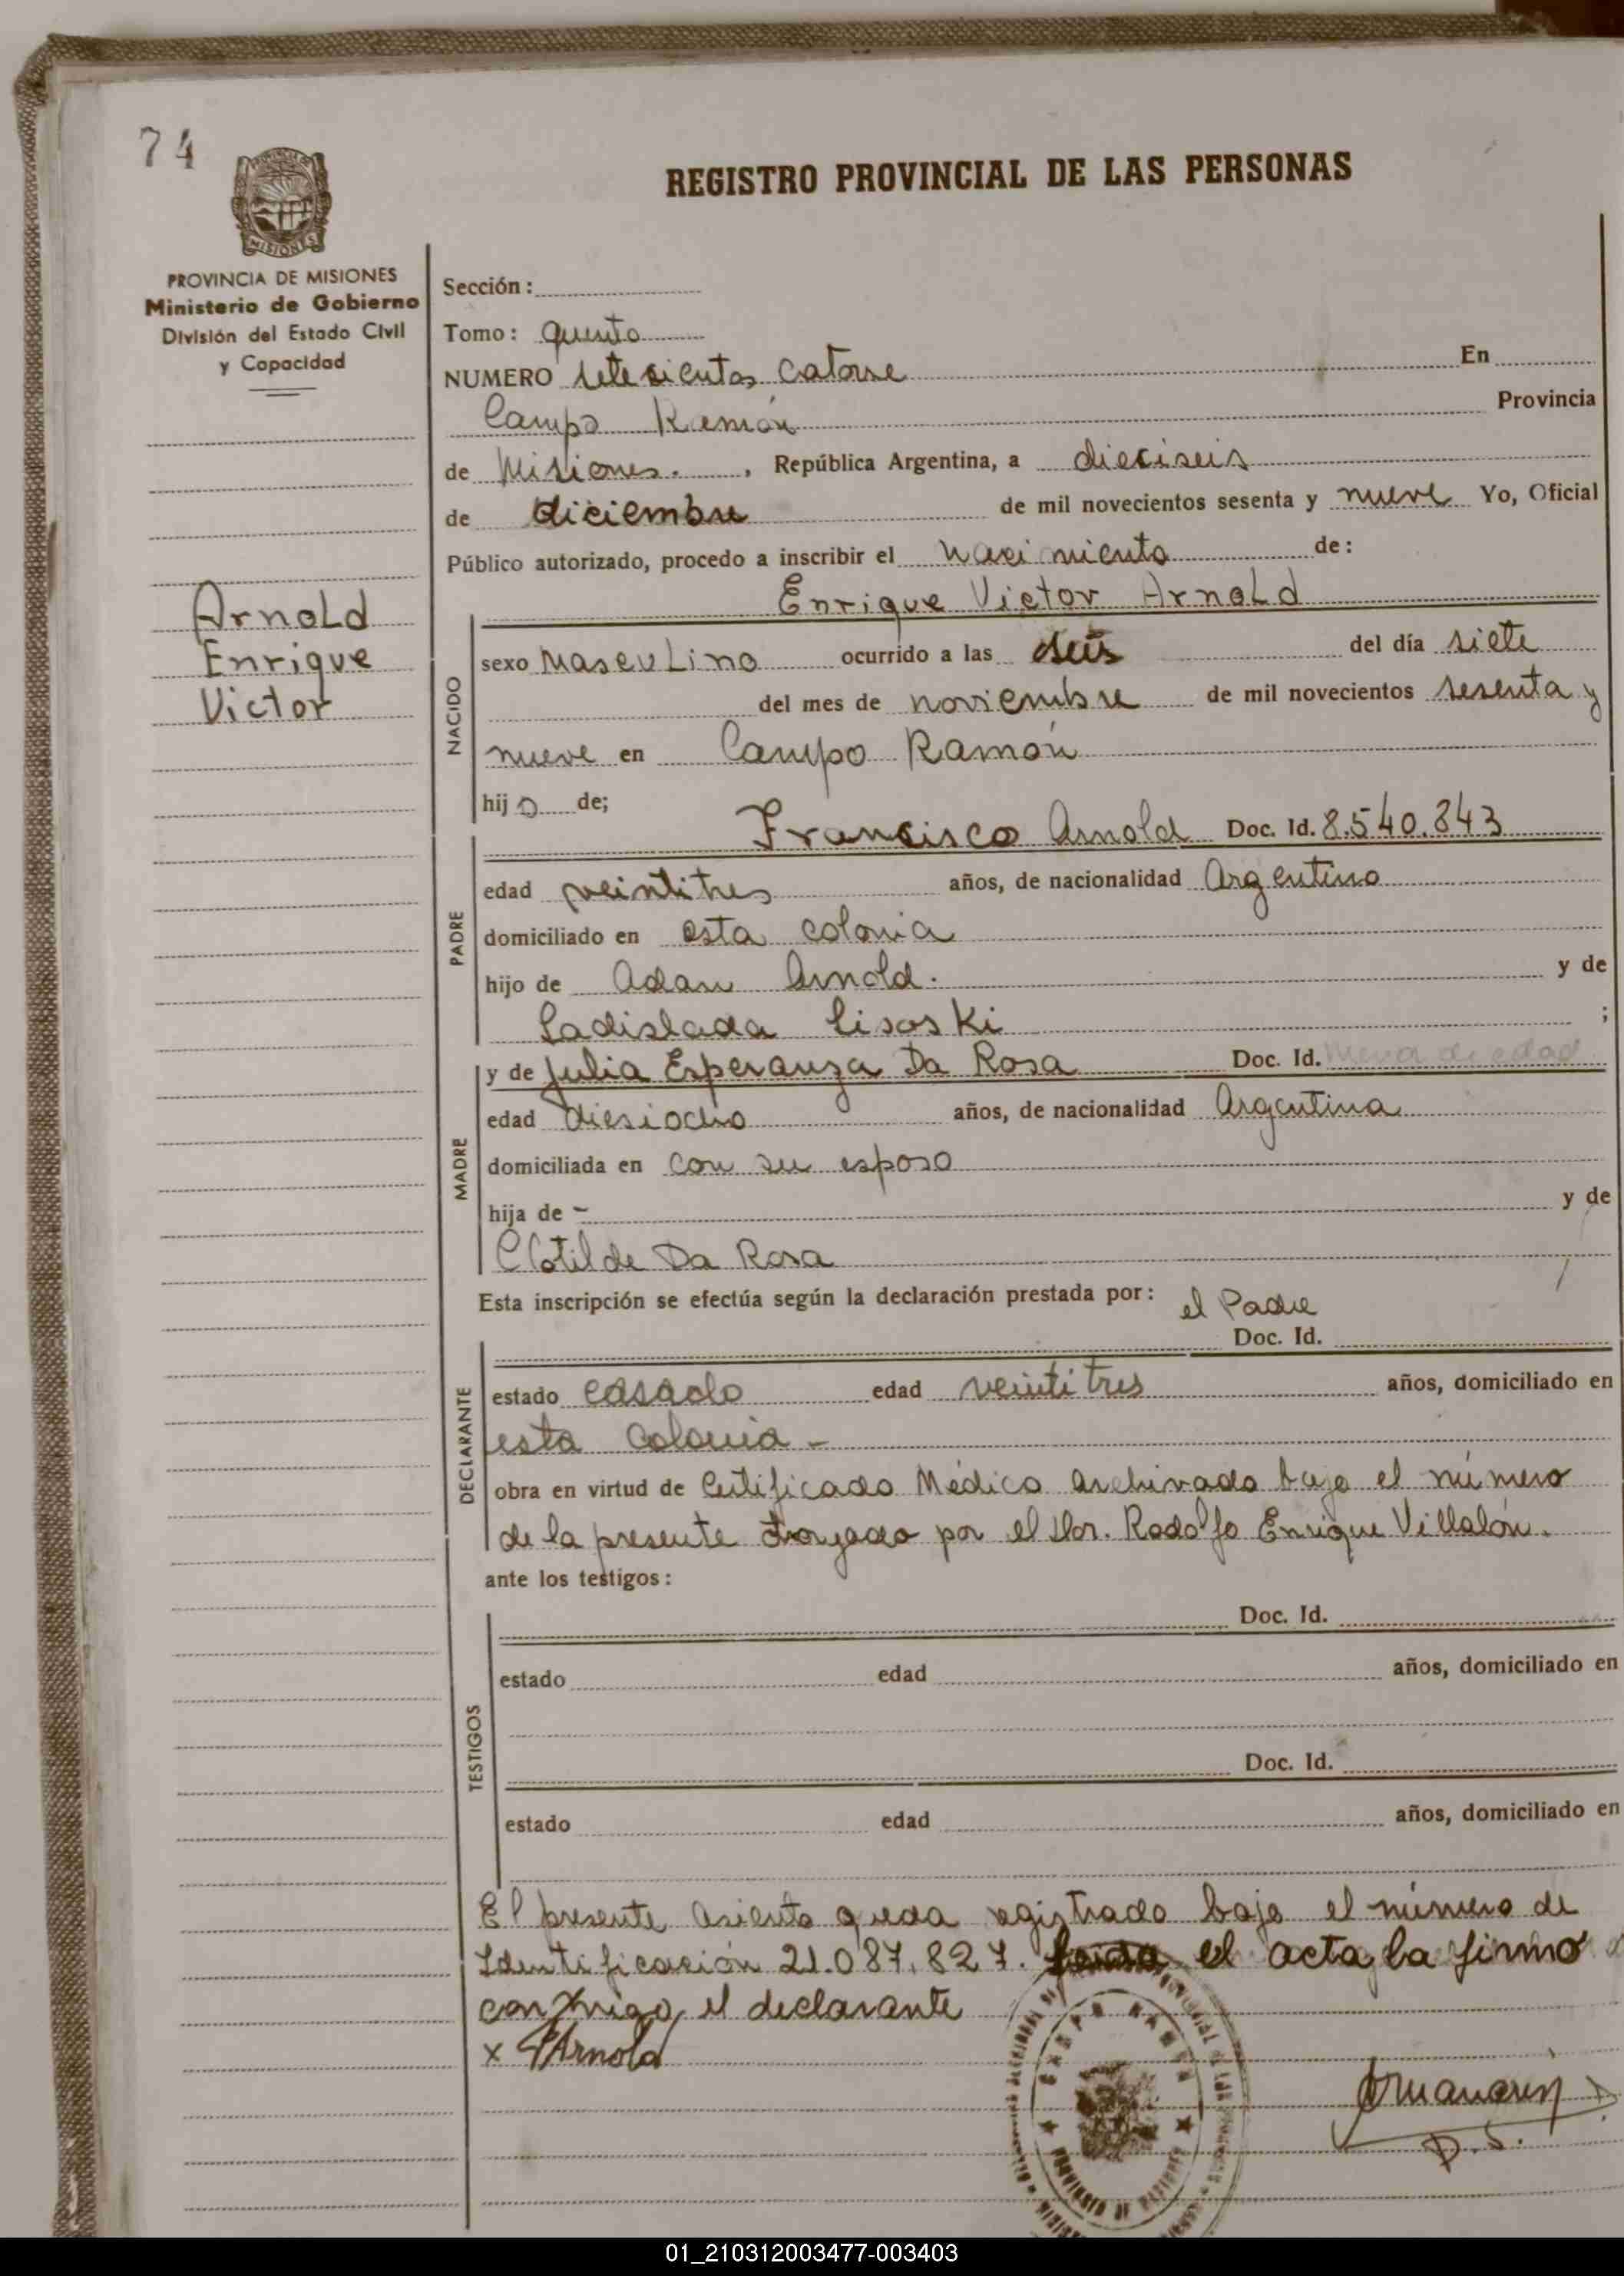 74
REGISTRO PROVINCIAL DE LAS PERSONAS
MISIONES
PROVINCIA DE MISIONES
Ministerio de Gobierno
División del Estado Civil
y Capacidad
Arnold
Enrique
Victor
Sección:
Tomo: quinto
NUMERO setesientos catorse En
Campo Ramón Provincia
de Misiones. , República Argentina, a dieciseis
de diciembre de mil novecientos sesenta y nueve Yo, Oficial
Público autorizado, procedo a inscribir el nacimiento de:
Enrique Victor Arnold
NACIDO
sexo Masculino ocurrido a las seis del día siete
del mes de noviembre de mil novecientos sesenta y
nueve en Campo Ramón
hijo de;
PADRE
Francisco Arnold Doc. Id. 8.540.843
edad veintitres años, de nacionalidad Argentino
domiciliado en esta colonia
hijo de Adan Arnold. y de
Ladislada Lisoski ;
MADRE
y de Julia Esperanza Da Rosa Doc. Id. menor de edad
edad diesiocho años, de nacionalidad Argentina
domiciliada en con su esposo
hija de - y de
Clotilde Da Rosa
Esta inscripción se efectúa según la declaración prestada por: el Padre
Doc. Id.
DECLARANTE
estado casado edad veintitres años, domiciliado en
esta colonia -
obra en virtud de Certificado Médico archivado bajo el número
de la presente por el Dor. Rodolfo Enrique Villalón.
ante los testigos:
TESTIGOS
Doc. Id.
estado edad años, domiciliado en
Doc. Id.
estado edad años, domiciliado en
El presente asiento queda registrado bajo el número de
Identificación 21.087.827. el acta, la firmo
conmigo, el declarante
x FArnold
D.S.
01_210312003477-003403